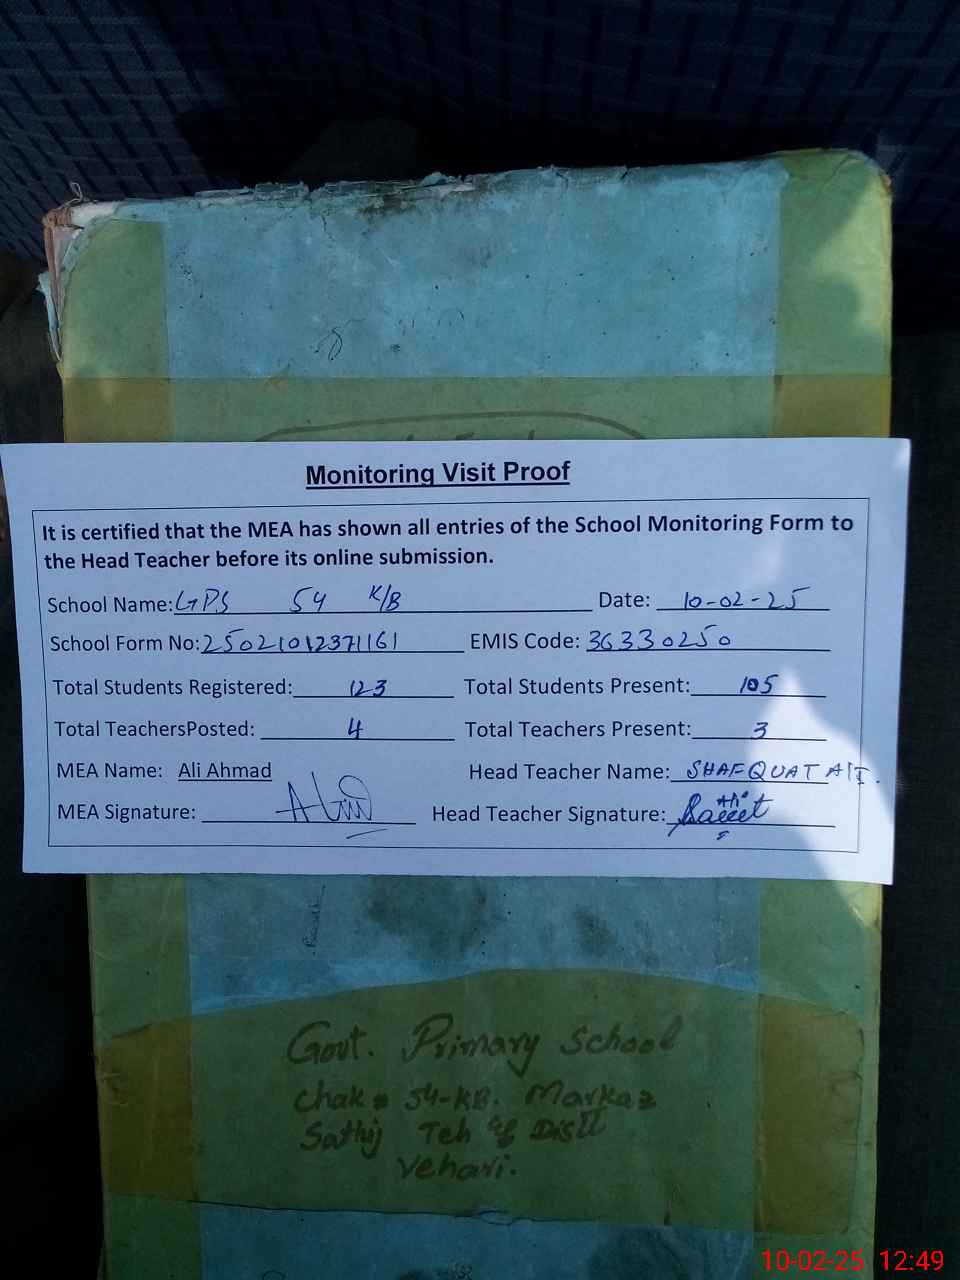 Monitoring Visit Proof
It is certified that the MEA has shown all entries of the School Monitoring Form to
the Head Teacher before its online submission.
School Name: GPS 54 K/B Date: 10-02-25
School Form No: 25021012371161 EMIS Code: 36330250
Total Students Registered: 123 Total Students Present: 105
Total TeachersPosted: 4 Total Teachers Present: 3
MEA Name: Ali Ahmad Head Teacher Name: SHAFQUAT ALI.
MEA Signature: Head Teacher Signature:
Govt. Primary School
Chak # 54-KB. Markaz
Teh & Distt
Vehari.
10-02-25 12:49